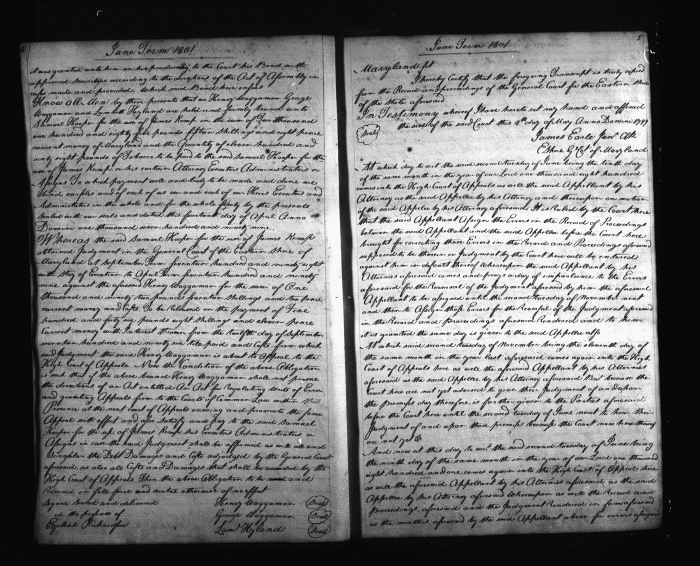 June Term 1801
it was granted unto him on his producing to the Court his Bond with
approved Securities according to the directions of the Act of Assembly in
case made and provided. Which said Bond here ensues
Know all Men by these presents that we Henry Waggaman George
Waggaman and Lambt Hyland are held and firmly bound unto
Samuel Keerp for the use of James Kemp in the sum of Two thousand
one hundred and eighty five pounds fifteen shillings and eight pence
current money of Maryland and the Quantity of eleven hundred and
sixty eight pounds of Tobacco to be paid to the said Samuel for the
use of James Kemp or his certain Attorney Executors Administrators or
Assigns To which payment well and truly to be made and done we
bind ourselves and each of us our and each of our Heirs Executors and
Administrators in the whole and for the whole firmly by the presents
Sealed with our seals and dated this fourteenth day of April Anno
Domini one thousand seven hundred and ninety nine.
Whereas the said Samuel for the use of James Kemp
obtained Judgment in the General Court of the Eastern Shore of
Maryland at September Term seventeen hundred and ninety eight
with stay of Execution to April Term seventeen hundred and ninety
nine against the aforesaid Henry Waggaman for the sum of One
thousand and ninety two pounds seventeen Shillings and ten pence
current money and Costs To be Released on the payment of Five
hundred and forty six pounds eight shillings and eleven pence
Current money with Interest thereon from the twelfth day of September
seventeen hundred and ninety six till paid and Costs from which
said Judgment the said Henry Waggaman is about to Appeal to the
High Court of Appeals. Now the Condition of the above Obligation
is such that if the above bound Henry Waggaman shall not pursue
the directions of an Act entitled An Act for Regulating Writs of Error
and granting Appeals from to the Courts of Common Law within this
Province at the next court of Appeals ensuing and prosecute the same
Appeal with effect and also satisfy and pay to the said Samuel
for the use of James Kemp his Executors Administrators or
Assigns in case the said Judgment shall be affirmed as well all and
Singular the Debt Damages and Costs adjudged by the General Court
aforesaid as also all Costs and Damages that shall be awarded by the
High Court of Appeals Then the above Obligation to be and
remain in full force and virtue otherwise of no effect
Signed sealed and delivered Henry Waggaman Seal
in the presence of George Waggaman Seal
Ezekiel Richardson Lamt Hyland Seal
June Term 1801
5
Maryland sct
I hereby Certify that the foregoing Transcript is truly copied
from the Record and Proceedings of the General Court for the Eastern Shore
of the State aforesaid
In Testimony whereof I have hereto set my hand and affixed
Seal the seal of the said Court this day of May Anno Domini 1799
James Earle Junr Clk
Eshore Gl Ct of Maryland
At which day to wit the second tuesday of June being the tenth day
of the same month in the year of our Lord one thousand eight hundred
comes into the High Court of Appeals as well the said Appellant by his
Attorney as the said Appellee by his Attorney and thereupon on motion
of the said Appellee by his Attorney aforesaid It is Ruled by the Court here
that the said Appellant Assign the Errors in the Record of Proceedings
between the said Appellant and the said Appellee before the Court here
brought for correcting those Errors in the Record and Proceedings aforesaid
supposed to be therein or Judgment by the Court here will be entered
against him in default thereof Whereupon the said Appellant by his
Attornies aforesaid comes and prays a day of imparlance to the Errors
aforesaid for the Reversal of the Judgment aforesaid by him the aforesaid
Appellant to be assigned until the second tuesday of November next
and then to Assign those Errors for the Reversal of the Judgment aforesaid
in the Record and Proceedings aforesaid Rendered and to him
it is granted the same day is given to the said Appellee also
At which said second tuesday of November being the eleventh day of
the same month in the year last aforesaid comes again into the High
Court of Appeals here as well the aforesaid Appellant by his Attornies
aforesaid as the said Appellee by his Attorney aforesaid But because the
Court here are not yet advised to give their Judgment of and upon
the premises day therefore is further given to the Parties aforesaid
before the Court here until the second tuesday of June next to hear their
Judgment of and upon these premises because the Court now here thereof
are not yet &c
And now at this day to wit the said second tuesday of June being
the ninth day of the same month in the year of our Lord one thousand
eight hundred and one comes again into the High Court of Appeals here
as well the aforesaid Appellant by his Attornies aforesaid as the said
Appellee by his Attorney aforesaid Whereupon as well the Record and
Proceedings aforesaid and the Judgment Rendered in form aforesaid
as the matters aforesaid by the said Appellant above for errors assigned